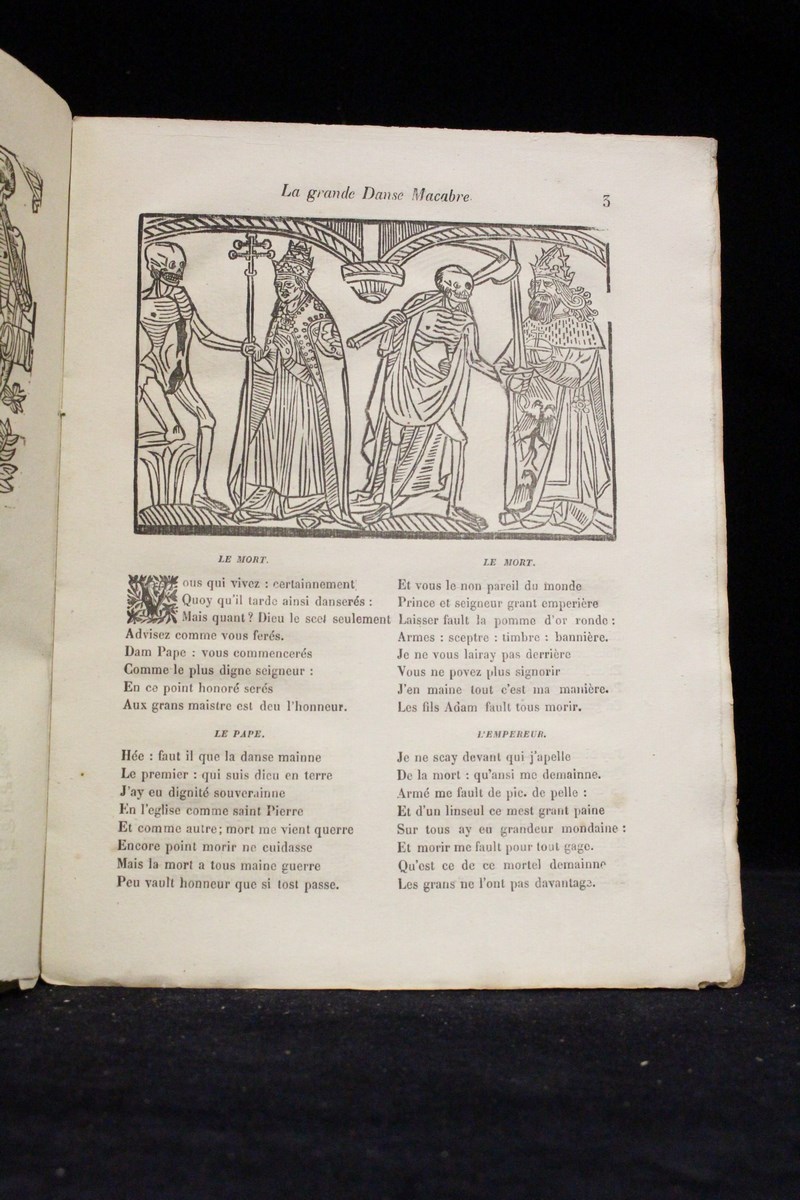 La grande Danse Macabre.
3
LE MORT.
Vous qui vivez : certainnement
Quoy qu'il tarde ainsi danserés :
Mais quant ? Dieu le scet seulement
Advisez comme vous ferés.
Dam Pape : vous commencerés
Comme le plus digne seigneur :
En ce point honoré serés
Aux grans maistre est deu l'honneur.
LE PAPE.
Hée : faut il que la danse mainne
Le premier : qui suis dieu en terre
J'ay eu dignité souverainne
En l'eglise comme saint Pierre
Et comme autre; mort me vient querre
Encore point morir ne cuidasse
Mais la mort a tous maine guerre
Peu vault honneur que si tost passe.
LE MORT.
Et vous le non pareil du monde
Prince et seigneur grant emperière
Laisser fault la pomme d'or ronde :
Armes : sceptre : timbre : bannière.
Je ne vous lairay pas derrière
Vous ne povez plus signorir
J'en maine tout c'est ma manière.
Les fils Adam fault tous morir.
L'EMPEREUR.
Je ne scay devant qui j'apelle
De la mort : qu'ansi me demainne.
Armé me fault de pic. de pelle :
Et d'un linseul ce mest grant paine
Sur tous ay eu grandeur mondaine :
Et morir me fault pour tout gage.
Qu'est ce de ce mortel demainne
Les grans ne l'ont pas davantage.